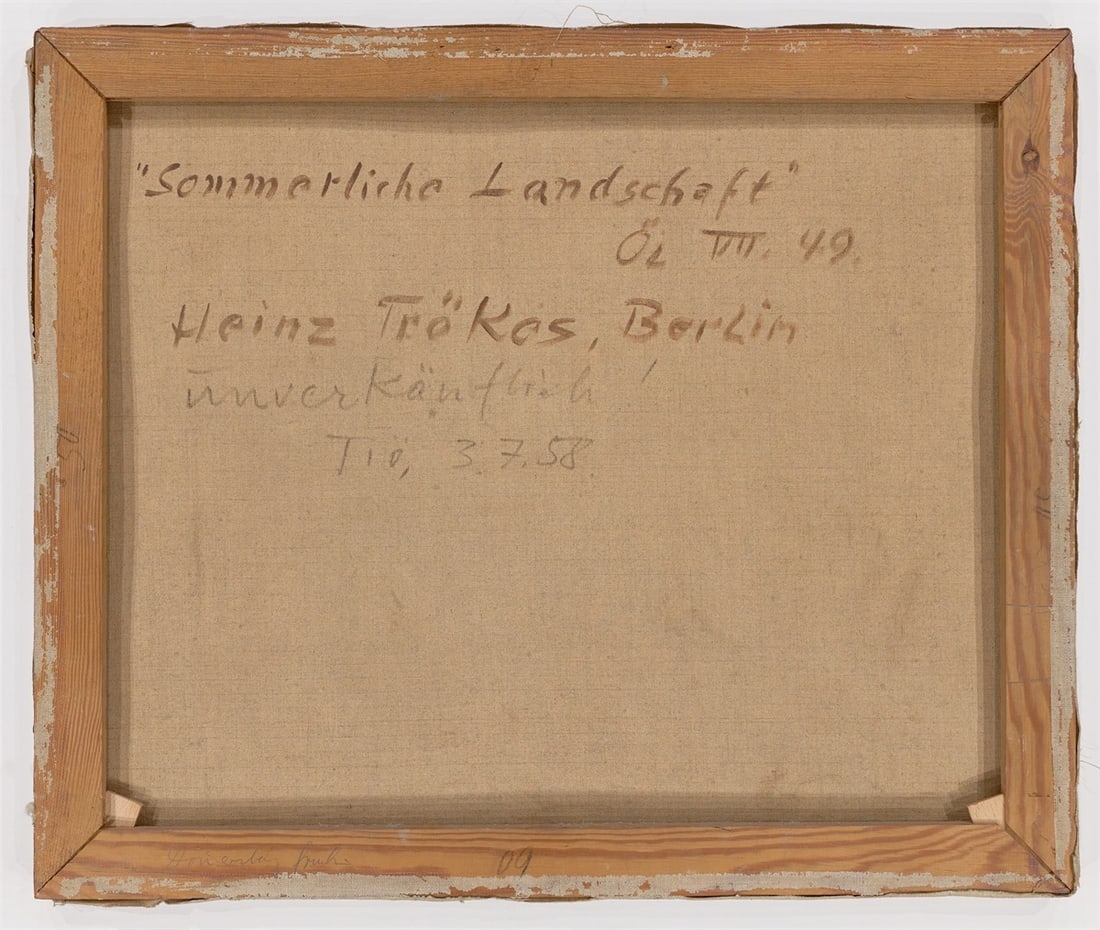 "Sommerliche Landschaft"
Öl VII. 49.
Heinz Trökes, Berlin
unverkäuflich!
Trö, 3.7.58.
50
09